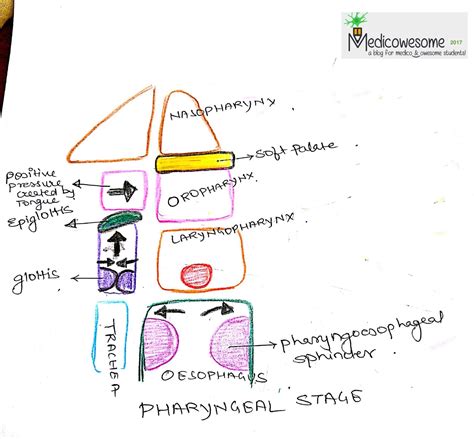 Medicowesome 2017
a blog for medico & awesome students!
NASOPHARYNX
Soft Palate
Positive
Pressure
created by
Tongue
OROPHARYNX
Epiglottis
LARYNGOPHARYNX
glottis
pharyngoesophageal
sphincter
TRACHEA
OESOPHAGUS
PHARYNGEAL STAGE